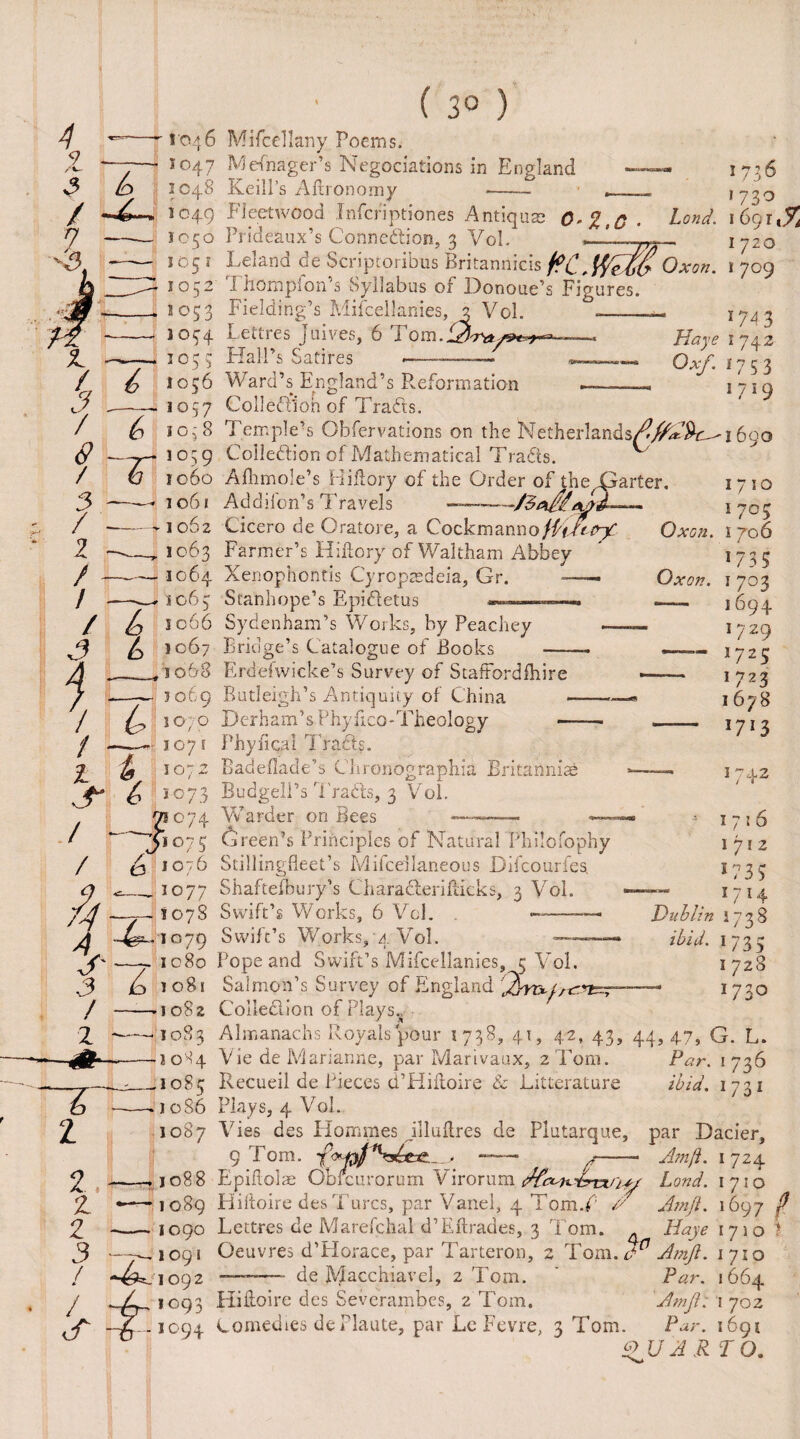 ( 30 )
4 — 1046 Mifcellany Poems.
2 — 1047 Mefnager's Negociations in England — 1736
3 6 1048 Keill's Aftronomy — 1730
1 1049 Fleetwood Infcriptiones Antiquæ 0.2.0. Lond. 1691
7 — 1050 Prideaux's Connection, 3 Vol. — 1720
3 — 1051 Leland de Scriptoribus Britannicis Oxon. 1709
1052 Thompfon's Syllabus of Donoue's Figures.
1053 Fielding's Mifcellanies, 3 Vol. — 1743
1054 Lettres Juives, 6 Tom. — Haye 1742
2 — 1055 Hall's Satires — Oxf. 1753
1 6 1056 Ward's England's Reformation — 1719
3 — 1057 Collection of Tracts.
1 6 1058 Temple's Obfervations on the Netherlands 1690
8 — 1059 Collection of Mathematical Tracts.
1 6 1060 Afhmole's Hiftory of the Order of the Garter. 1710
3 — 1061 Addifon's Travels — 1705
1 — 1062 Cicero de Oratore, a Cockmanno Oxon. 1706
2 — 1063 Farmer's Hiftory of Waltham Abbey 1735
1 — 1064 Xenophontis Cyropædeia, Gr. — Oxon. 1703
1 — 1065 Stanhope's Epictetus — 1694
1 6 1066 Sydenham's Works, by Peachey — 1729
3 6 1067 Bridge's Catalogue of Books — 1725
4 — 1068 Erdefwicke's Survey of Staffordfhire — 1723
7 — 1069 Butleigh's Antiquity of China — 1678
1 6 1070 Derham's Phyfico-Theology — 1713
1 — 1071 Phyfical Tracts.
2 6 1072 Badeflade's Chronographia Britanniæ — 1742
5 6 1073 Budgell's Tracts, 3 Vol.
1074 Warder on Bees — 1716
1 1075 Green's Principles of Natural Philofophy 1712
1 6 1076 Stillingfleet's Mifcellaneous Difcourfes 1735
9 — 1077 Shaftefbury's Characterifticks, 3 Vol. — 1714
14 — 1078 Swift's Works, 6 Vol. — Dublin 1738
4 6 1079 Swift's Works, 4 Vol. — ibid. 1735
5 — 1080 Pope and Swift's Mifcellanies, 5 Vol. 1728
3 6 1081 Salmon's Survey of England — 1730
1 — 1082 Collection of Plays.
2 — 1083 Almanachs Royals pour 1738, 41, 42, 43, 44, 47, G. L.
1084 Vie de Marianne, par Marivaux, 2 Tom. Par. 1736
1085 Recueil de Pieces d'Hiftoire & Litterature ibid. 1731
6 — 1086 Plays, 4 Vol.
2 1087 Vies des Hommes illuftres de Plutarque, par Dacier,
9 Tom. — Amft. 1724
2 — 1088 Epiftolæ Obfcurorum Virorum Lond. 1710
2 — 1089 Hiftoire des Turcs, par Vanel, 4 Tom. Amft. 1697
2 — 1090 Lettres de Marefchal d'Eftrades, 3 Tom. Haye 1710
3 — 1091 Oeuvres d'Horace, par Tarteron, 2 Tom. Amft. 1710
1 6 1092 — de Macchiavel, 2 Tom. Par. 1664
1 6 1093 Hiftoire des Severambes, 2 Tom. Amft. 1702
5 6 1094 Comedies de Plaute, par Le Fevre, 3 Tom. Par. 1691
QUARTO.